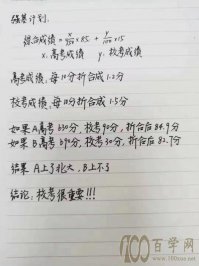 强基计划.
综合成绩 = x/750 × 85 + y/100 × 15
x. 高考成绩  y. 校考成绩
高考成绩, 每10分折合成1.2分
校考成绩, 每10分折合成1.5分
如果A高考630分, 校考90分, 折合后84.9分
如果B高考690分, 校考30分, 折合后82.7分
结果 A上了北大, B上不了
结论: 校考很重要!!!
100百学网
www.100xue.net